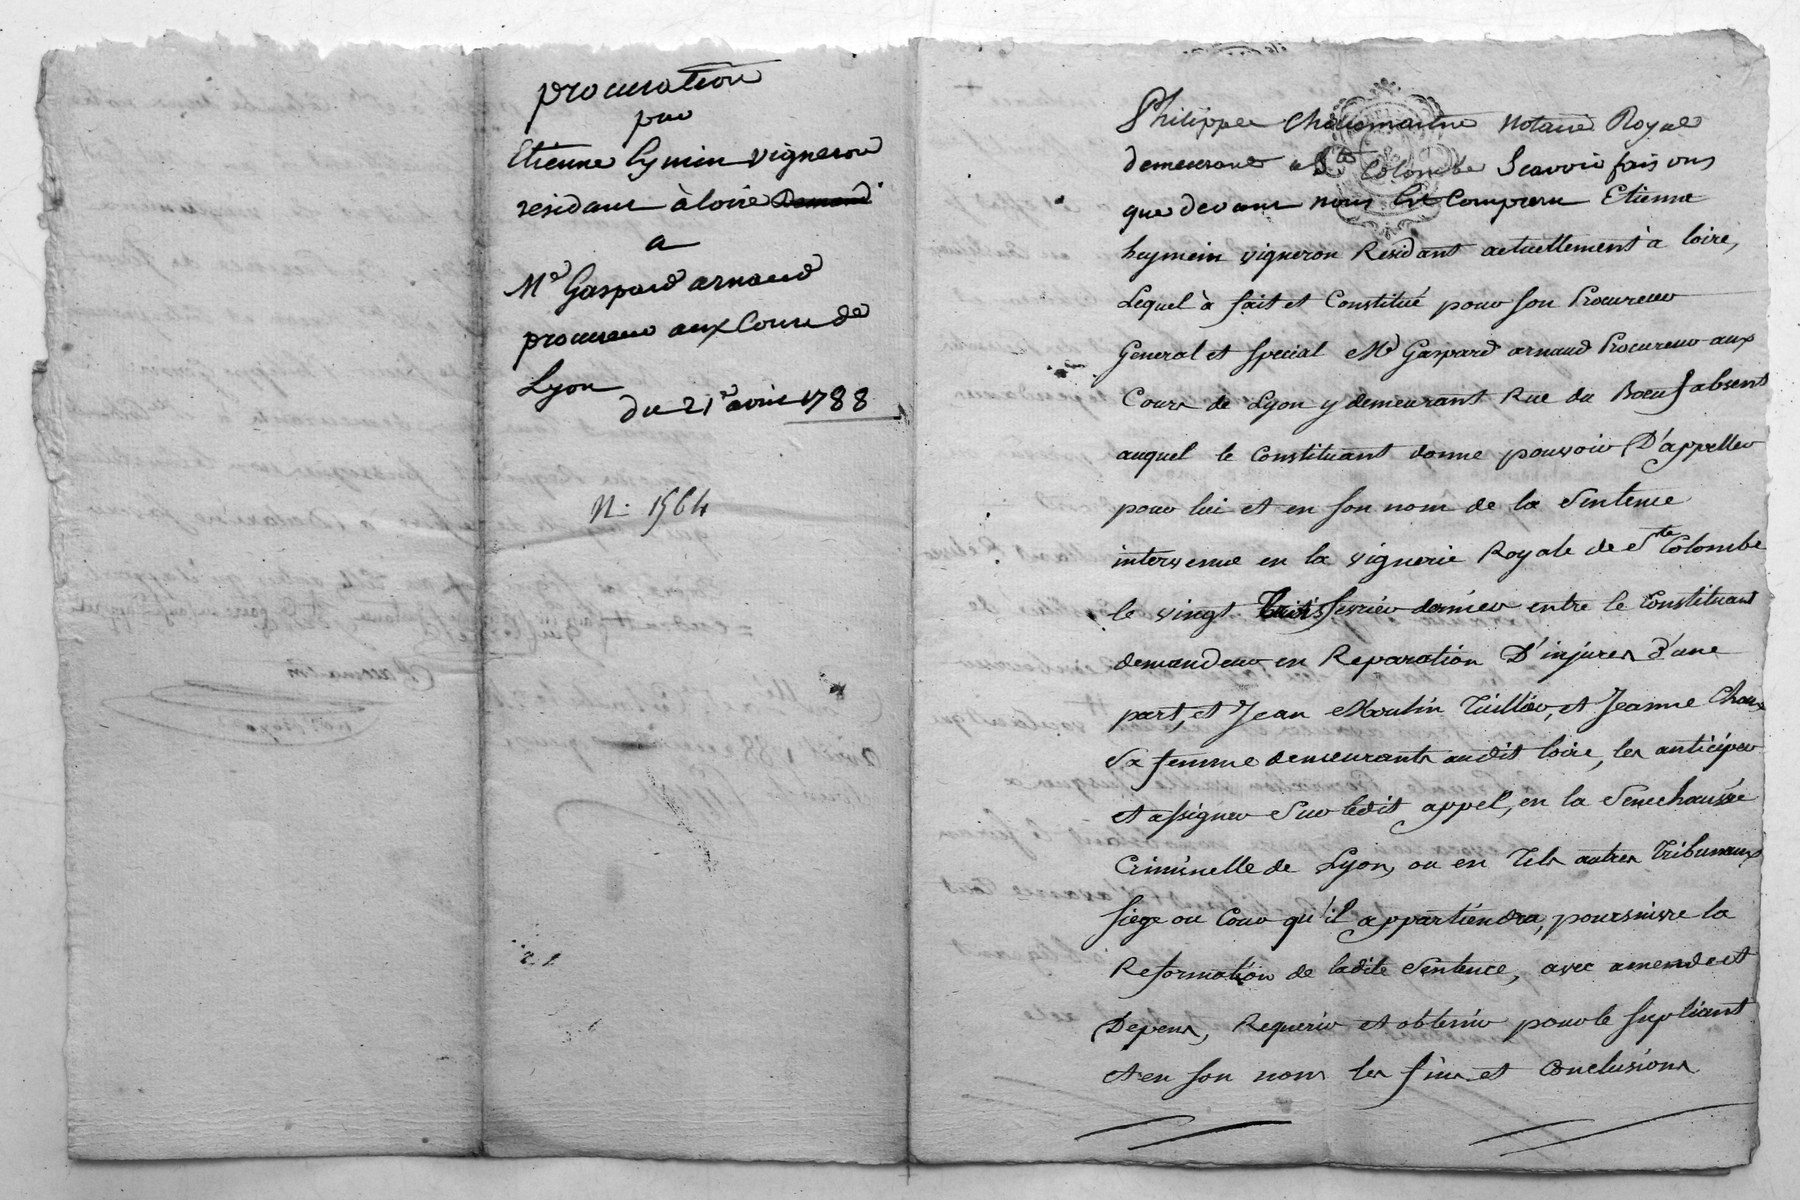 procuration
par
Etienne Eymin vigneron
residant à loire Demand
a
Me Gaspard arnaud
procureur aux Cours de
Lyon
du 21e avril 1788
N. 1564
Philippe Notaire Royal
demeurant a Ste Colombe Scavoir faisons
que devant nous Est Comparu Etienne
heymein vigneron Residant actuellement à loire,
Lequel à fait et Constitué pour son Procureur
General et special Me Gaspard arnaud Procureur aux
Cours de Lyon y demeurant Rue du Boeuf absent
auquel le Constituant donne pouvoir D'appeller
pour lui et en son nom de la Sentence
intervenue en la viguerie Royale de Ste Colombe
le vingt trois fevrier dernier entre le Constituant
demandeur en Reparation D'injures d'une
part, et Jean Moulin Tuillier, et Jeanne
Sa femme demeurants audit loire, les anticiper
et assigner Sur ledit appel, en la Senechaussée
Criminelle de Lyon, ou en Tels autres Tribunaux
siege ou Cour qu'il appartiendra, poursuivre la
Reformation de ladite Sentence, avec amende et
Depens, Requerir et obtenir pour le supliant
et en son nom les fins et Conclusions